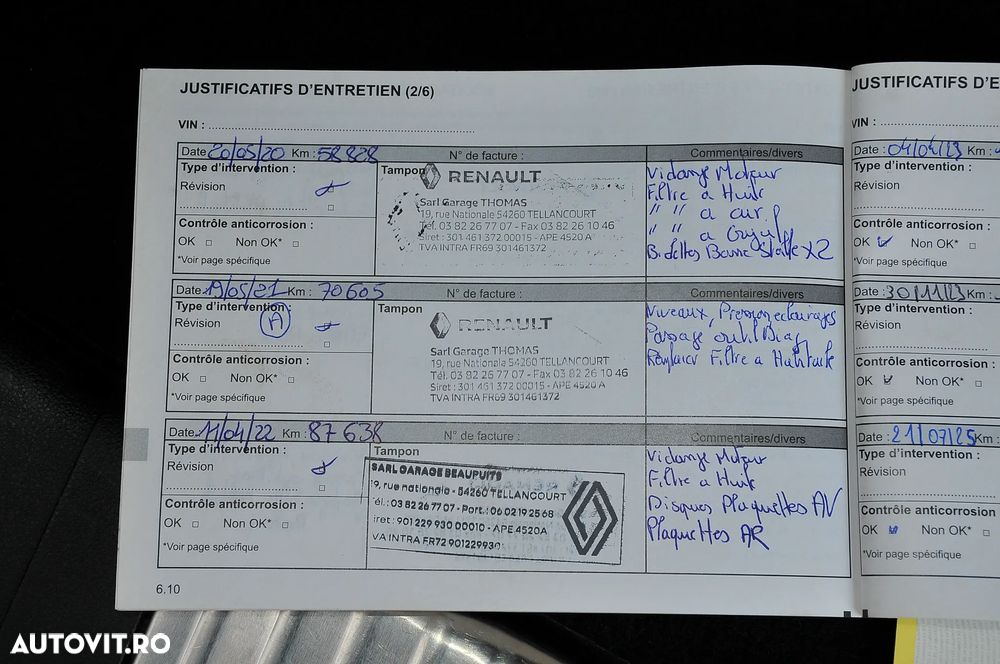 JUSTIFICATIFS D'ENTRETIEN (2/6)
VIN :
Date 20/05/20 Km : 58 828 N° de facture : Commentaires/divers
Type d'intervention :
Révision
Contrôle anticorrosion :
OK Non OK*
*Voir page spécifique
Tampon
RENAULT
Sarl Garage THOMAS
19, rue Nationale 54260 TELLANCOURT
Tél. 03 82 26 77 07 - Fax 03 82 26 10 46
Siret : 301 461 372 00015 - APE 4520 A
TVA INTRA FR69 301461372
Vidange Moteur
Filtre a Huile
" " a
" " a
Biellettes Barre Stabe X2
Date 19/05/21 Km : 70605 N° de facture : Commentaires/divers
Type d'intervention :
A
Révision
Contrôle anticorrosion :
OK Non OK*
*Voir page spécifique
Tampon
RENAULT
Sarl Garage THOMAS
19, rue Nationale 54260 TELLANCOURT
Tél. 03 82 26 77 07 - Fax 03 82 26 10 46
Siret : 301 461 372 00015 - APE 4520 A
TVA INTRA FR69 301461372
Niveaux, Pression eclairages
Passage outil Diag
Remplacer Filtre a Habitacle
Date 11/04/22 Km : 87 638 N° de facture : Commentaires/divers
Type d'intervention :
Révision
Contrôle anticorrosion :
OK Non OK*
*Voir page spécifique
Tampon
SARL GARAGE BEAUPUITS
19, rue nationale - 54260 TELLANCOURT
él. : 03 82 26 77 07 - Port. : 06 02 19 25 68
iret : 901 229 930 00010 - APE 4520A
VA INTRA FR72 901229930
Vidange Moteur
Filtre a Huile
Disques Plaquettes AV
Plaquettes AR
6.10
JUSTIFICATIFS D'E
VIN :
Date : 04/04/23 Km :
Type d'intervention :
Révision
Contrôle anticorrosion :
OK Non OK*
*Voir page spécifique
Date : 30/11/23 Km :
Type d'intervention :
Révision
Contrôle anticorrosion :
OK Non OK*
*Voir page spécifique
Date : 21/07/25 Km :
Type d'intervention :
Révision
Contrôle anticorrosion :
OK Non OK*
*Voir page spécifique
AUTOVIT.RO